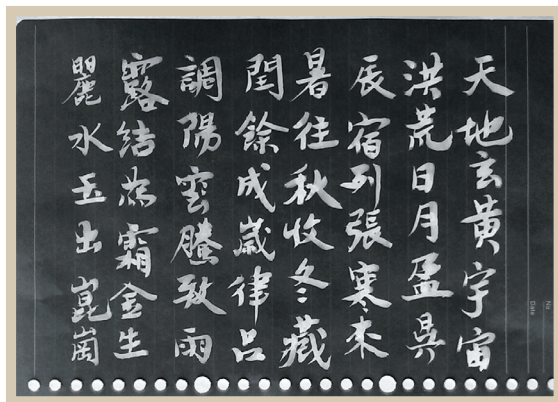 天地玄黃宇宙
洪荒日月盈昃
辰宿列張寒来
暑往秋收冬藏
閏餘成歲律呂
調陽雲騰致雨
露結為霜金生
麗水玉出崑崗
No
Date